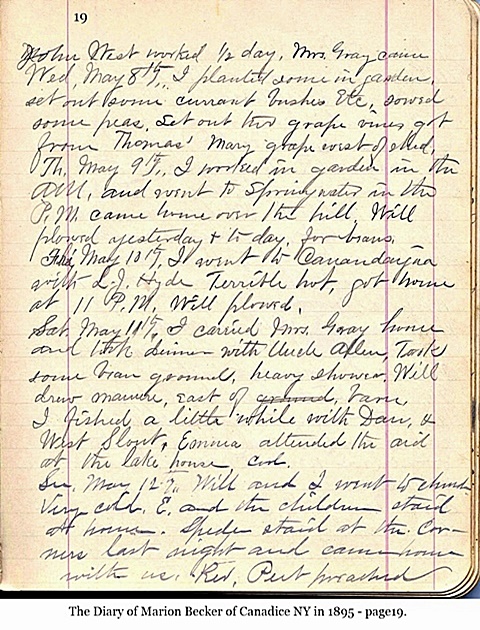 19
John West worked 1/2 day, Mrs. Gray came
Wed, May 8th, I planted some in garden,
set out some currant bushes Etc, sowed
some peas, Set out two grape vines got
from Thomas' Mary grape west of shed,
Th. May 9th, I worked in garden in the
A.M, and went to Springwater in the
P.M. came home over the hill, Will
plowed yesterday & to day, for beans.
Frid, May 10th, I went to Canandaigua
with L.J. Hyde Terrible hot, got home
at 11 P.M, Will plowed,
Sat. May 11th, I carried Mrs. Gray home
and took dinner with Uncle Allen, Took
some bran ground, heavy shower. Will
drew manure, east of ground, barn,
I fished a little while with Dan, &
West Slout, Emma attended the aid
at the lake house, cool.
Su. May 12th, Will and I went to church
Very cold. E. and the children staid
at home. Spide staid at the Cor-
ners last night and came home
with us. Rev, Peet preached
The Diary of Marion Becker of Canadice NY in 1895 - page19.